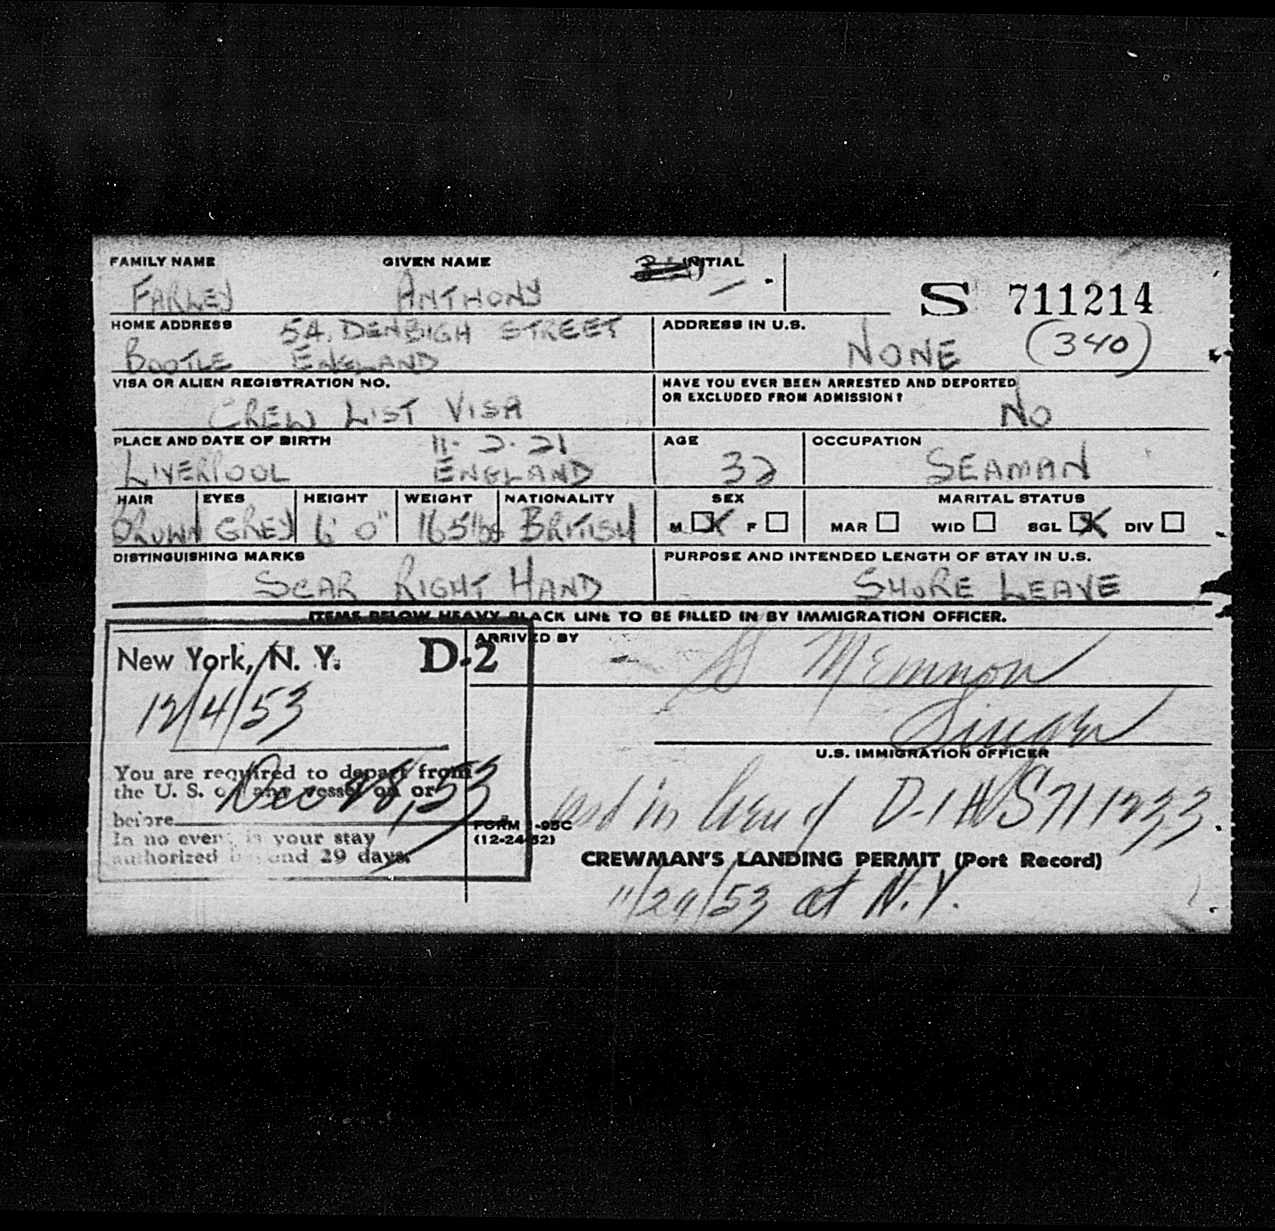 FAMILY NAME GIVEN NAME INITIAL
FARLEY ANTHONY —
S 711214
HOME ADDRESS 54, DENBIGH STREET
BOOTLE ENGLAND
ADDRESS IN U.S.
NONE (340)
VISA OR ALIEN REGISTRATION NO.
CREW LIST VISA
HAVE YOU EVER BEEN ARRESTED AND DEPORTED
OR EXCLUDED FROM ADMISSION?
NO
PLACE AND DATE OF BIRTH 11-2-21
LIVERPOOL ENGLAND
AGE
32
OCCUPATION
SEAMAN
HAIR EYES HEIGHT WEIGHT NATIONALITY
BROWN GREY 6' 0" 165 lbs BRITISH
SEX
M X F
MARITAL STATUS
MAR WID SGL X DIV
DISTINGUISHING MARKS
SCAR RIGHT HAND
PURPOSE AND INTENDED LENGTH OF STAY IN U.S.
SHORE LEAVE
ITEMS BELOW HEAVY BLACK LINE TO BE FILLED IN BY IMMIGRATION OFFICER.
New York, N. Y. D-2
12/4/53
You are required to depart from
the U. S. on any vessel on or
before Dec 28, 53
In no event is your stay
authorized beyond 29 days.
ARRIVED BY
Memnon
U.S. IMMIGRATION OFFICER
FORM I-95C
(12-24-52)
in lieu of D-1 # S711233
CREWMAN'S LANDING PERMIT (Port Record)
11/29/53 at N.Y.